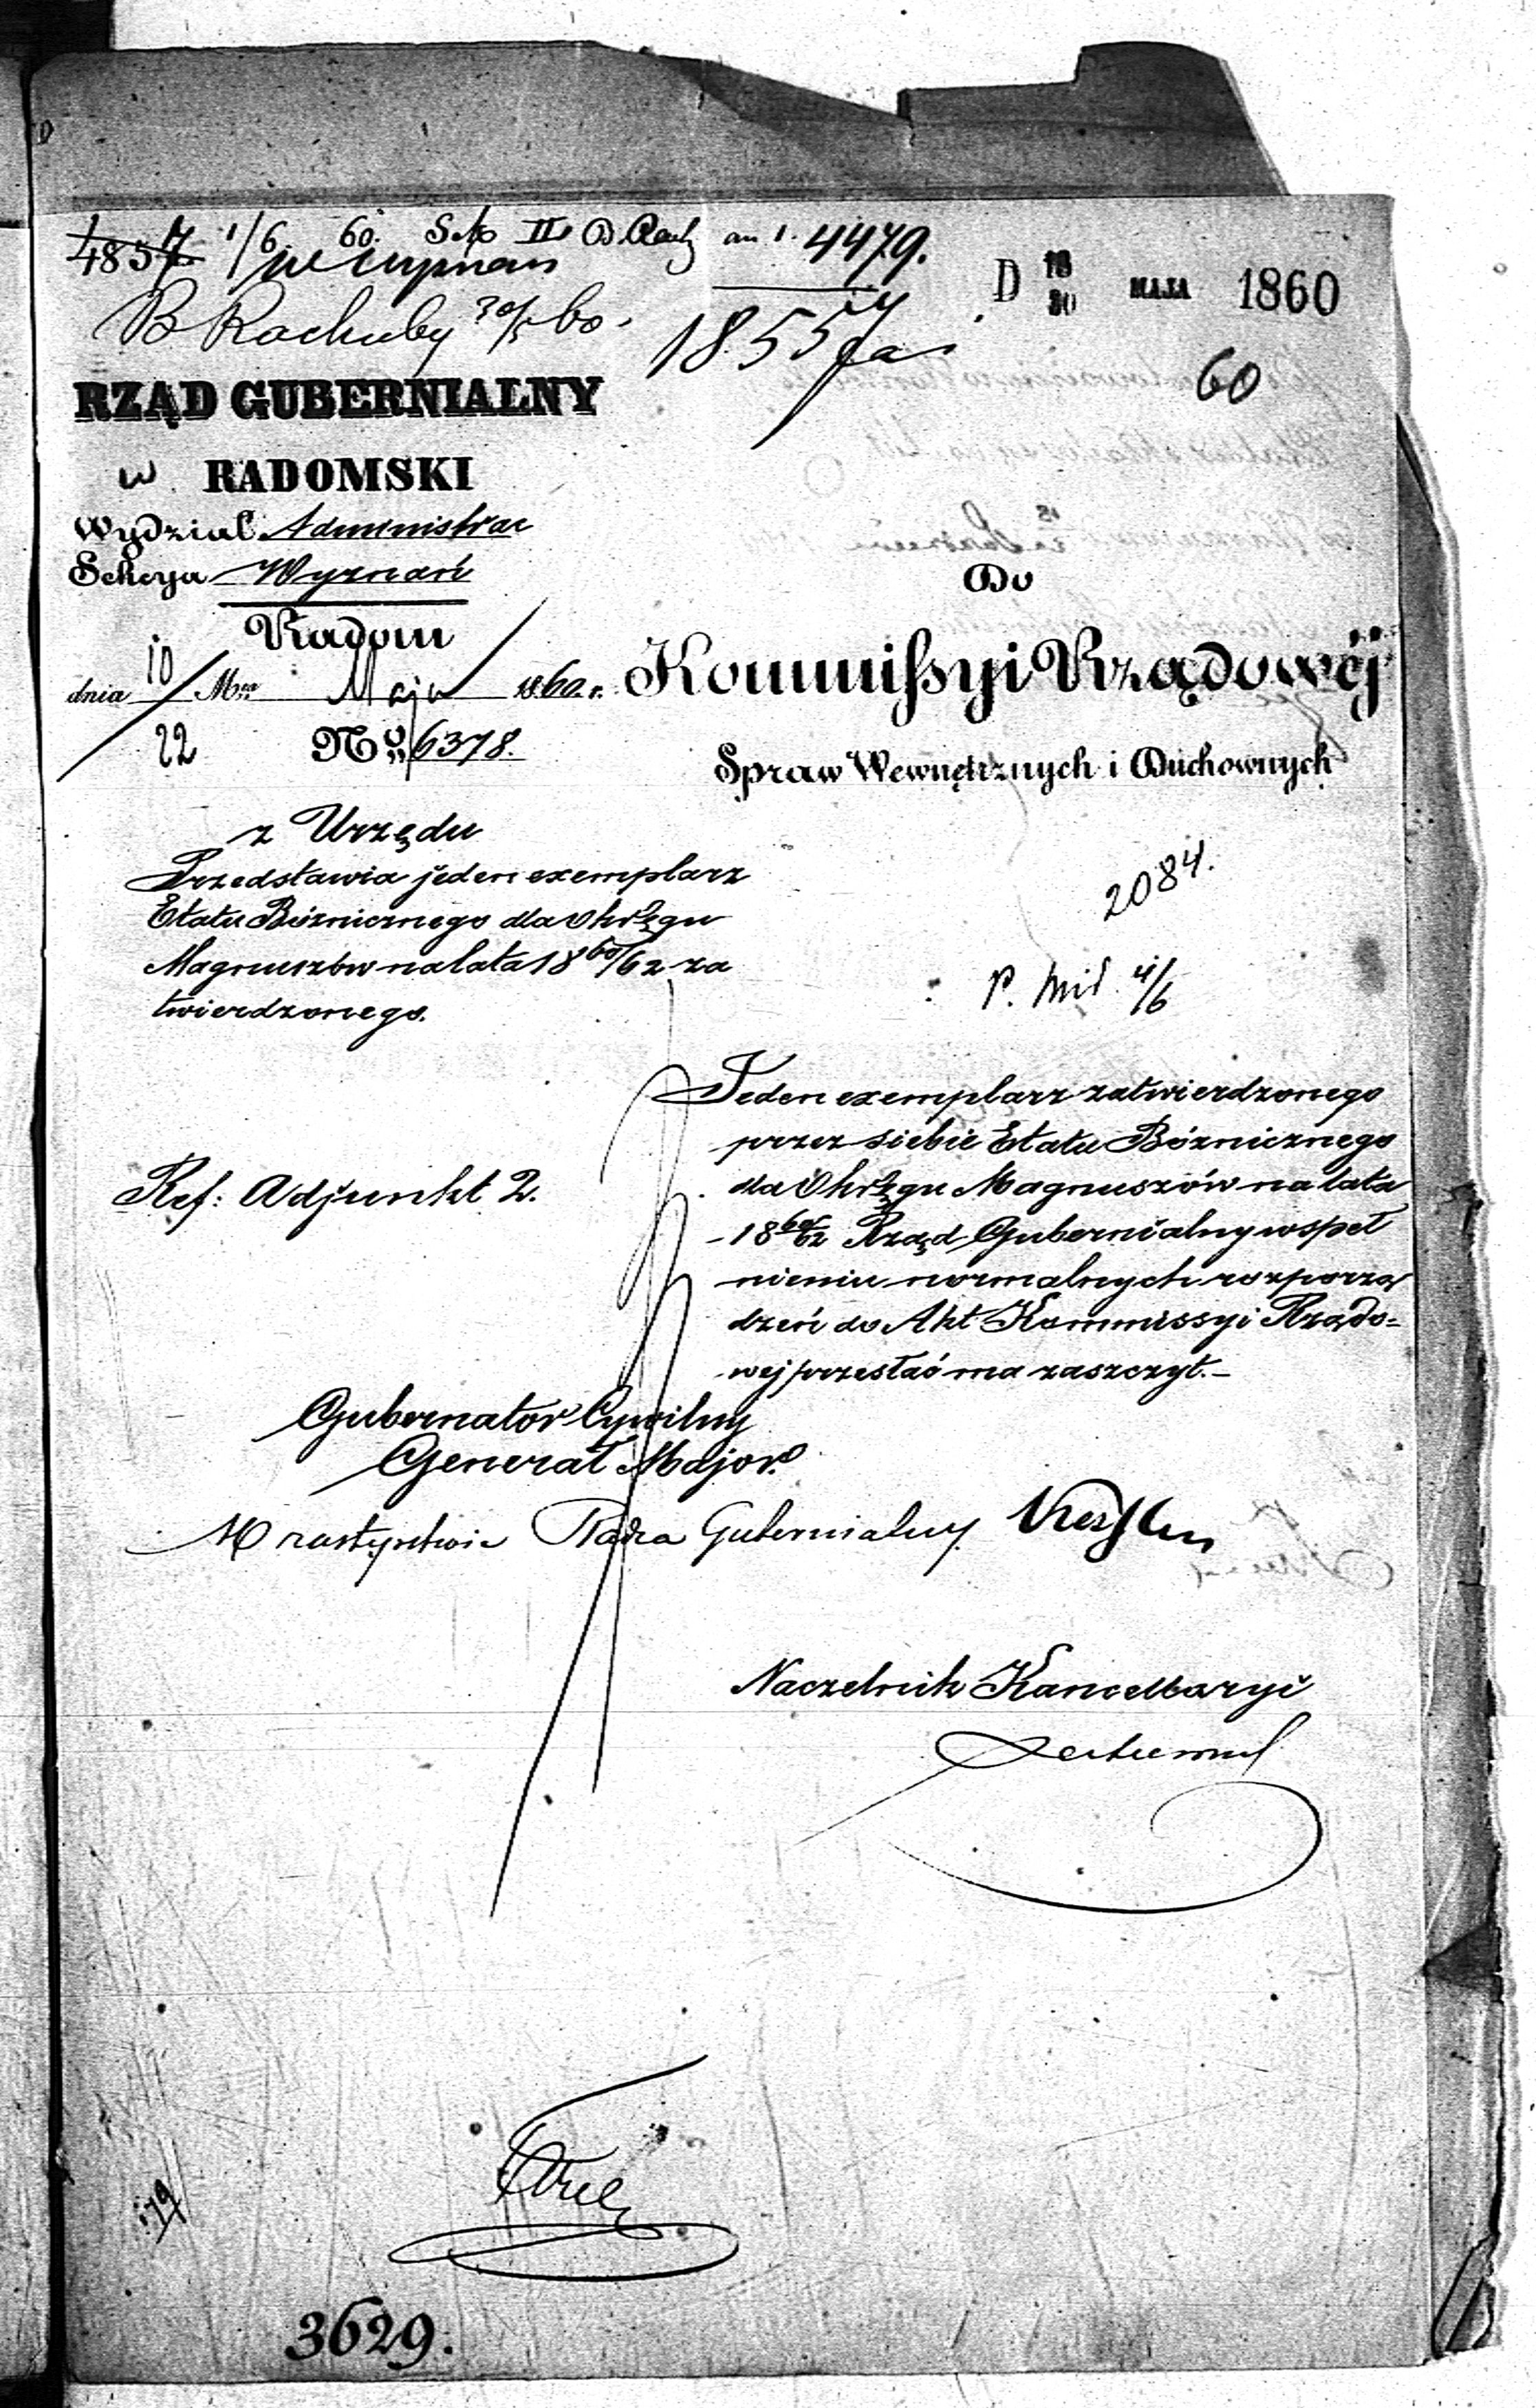 4857 1/6 60. II an 1. 4479.
D 18/30 MAJA 1860
B Rachuby 30/5 60.
18557
60
RZĄD GUBERNIALNY
w RADOMSKI
Wydział Administrac
Sekcya Wyznań
Radom
dnia 10/22 Maja 1860 r.
No 6378.
Do
Kommissyi Rządowéj
Spraw Wewnętrznych i Duchownych
z Urzędu
Przedstawia jeden exemplarz
Etatu Bóżnicznego dla Okręgu
Magnuszów na lata 1860/62 za
twierdzonego.
2084.
4/6
Jeden exemplarz zatwierdzonego
przez siebie Etatu Bóżnicznego
dla Okręgu Magnuszów na lata
1860/62 Rząd Gubernialny w speł
nieniu normalnych rozporzą
dzeń do Akt Kommissyi Rządo=
wej przesłać ma zaszczyt.–
Ref: Adjunkt 2.
Gubernator Cywilny
Generał Major
W zastępstwie Radca Gubernialny
Naczelnik Kancellaryi
179
3629.